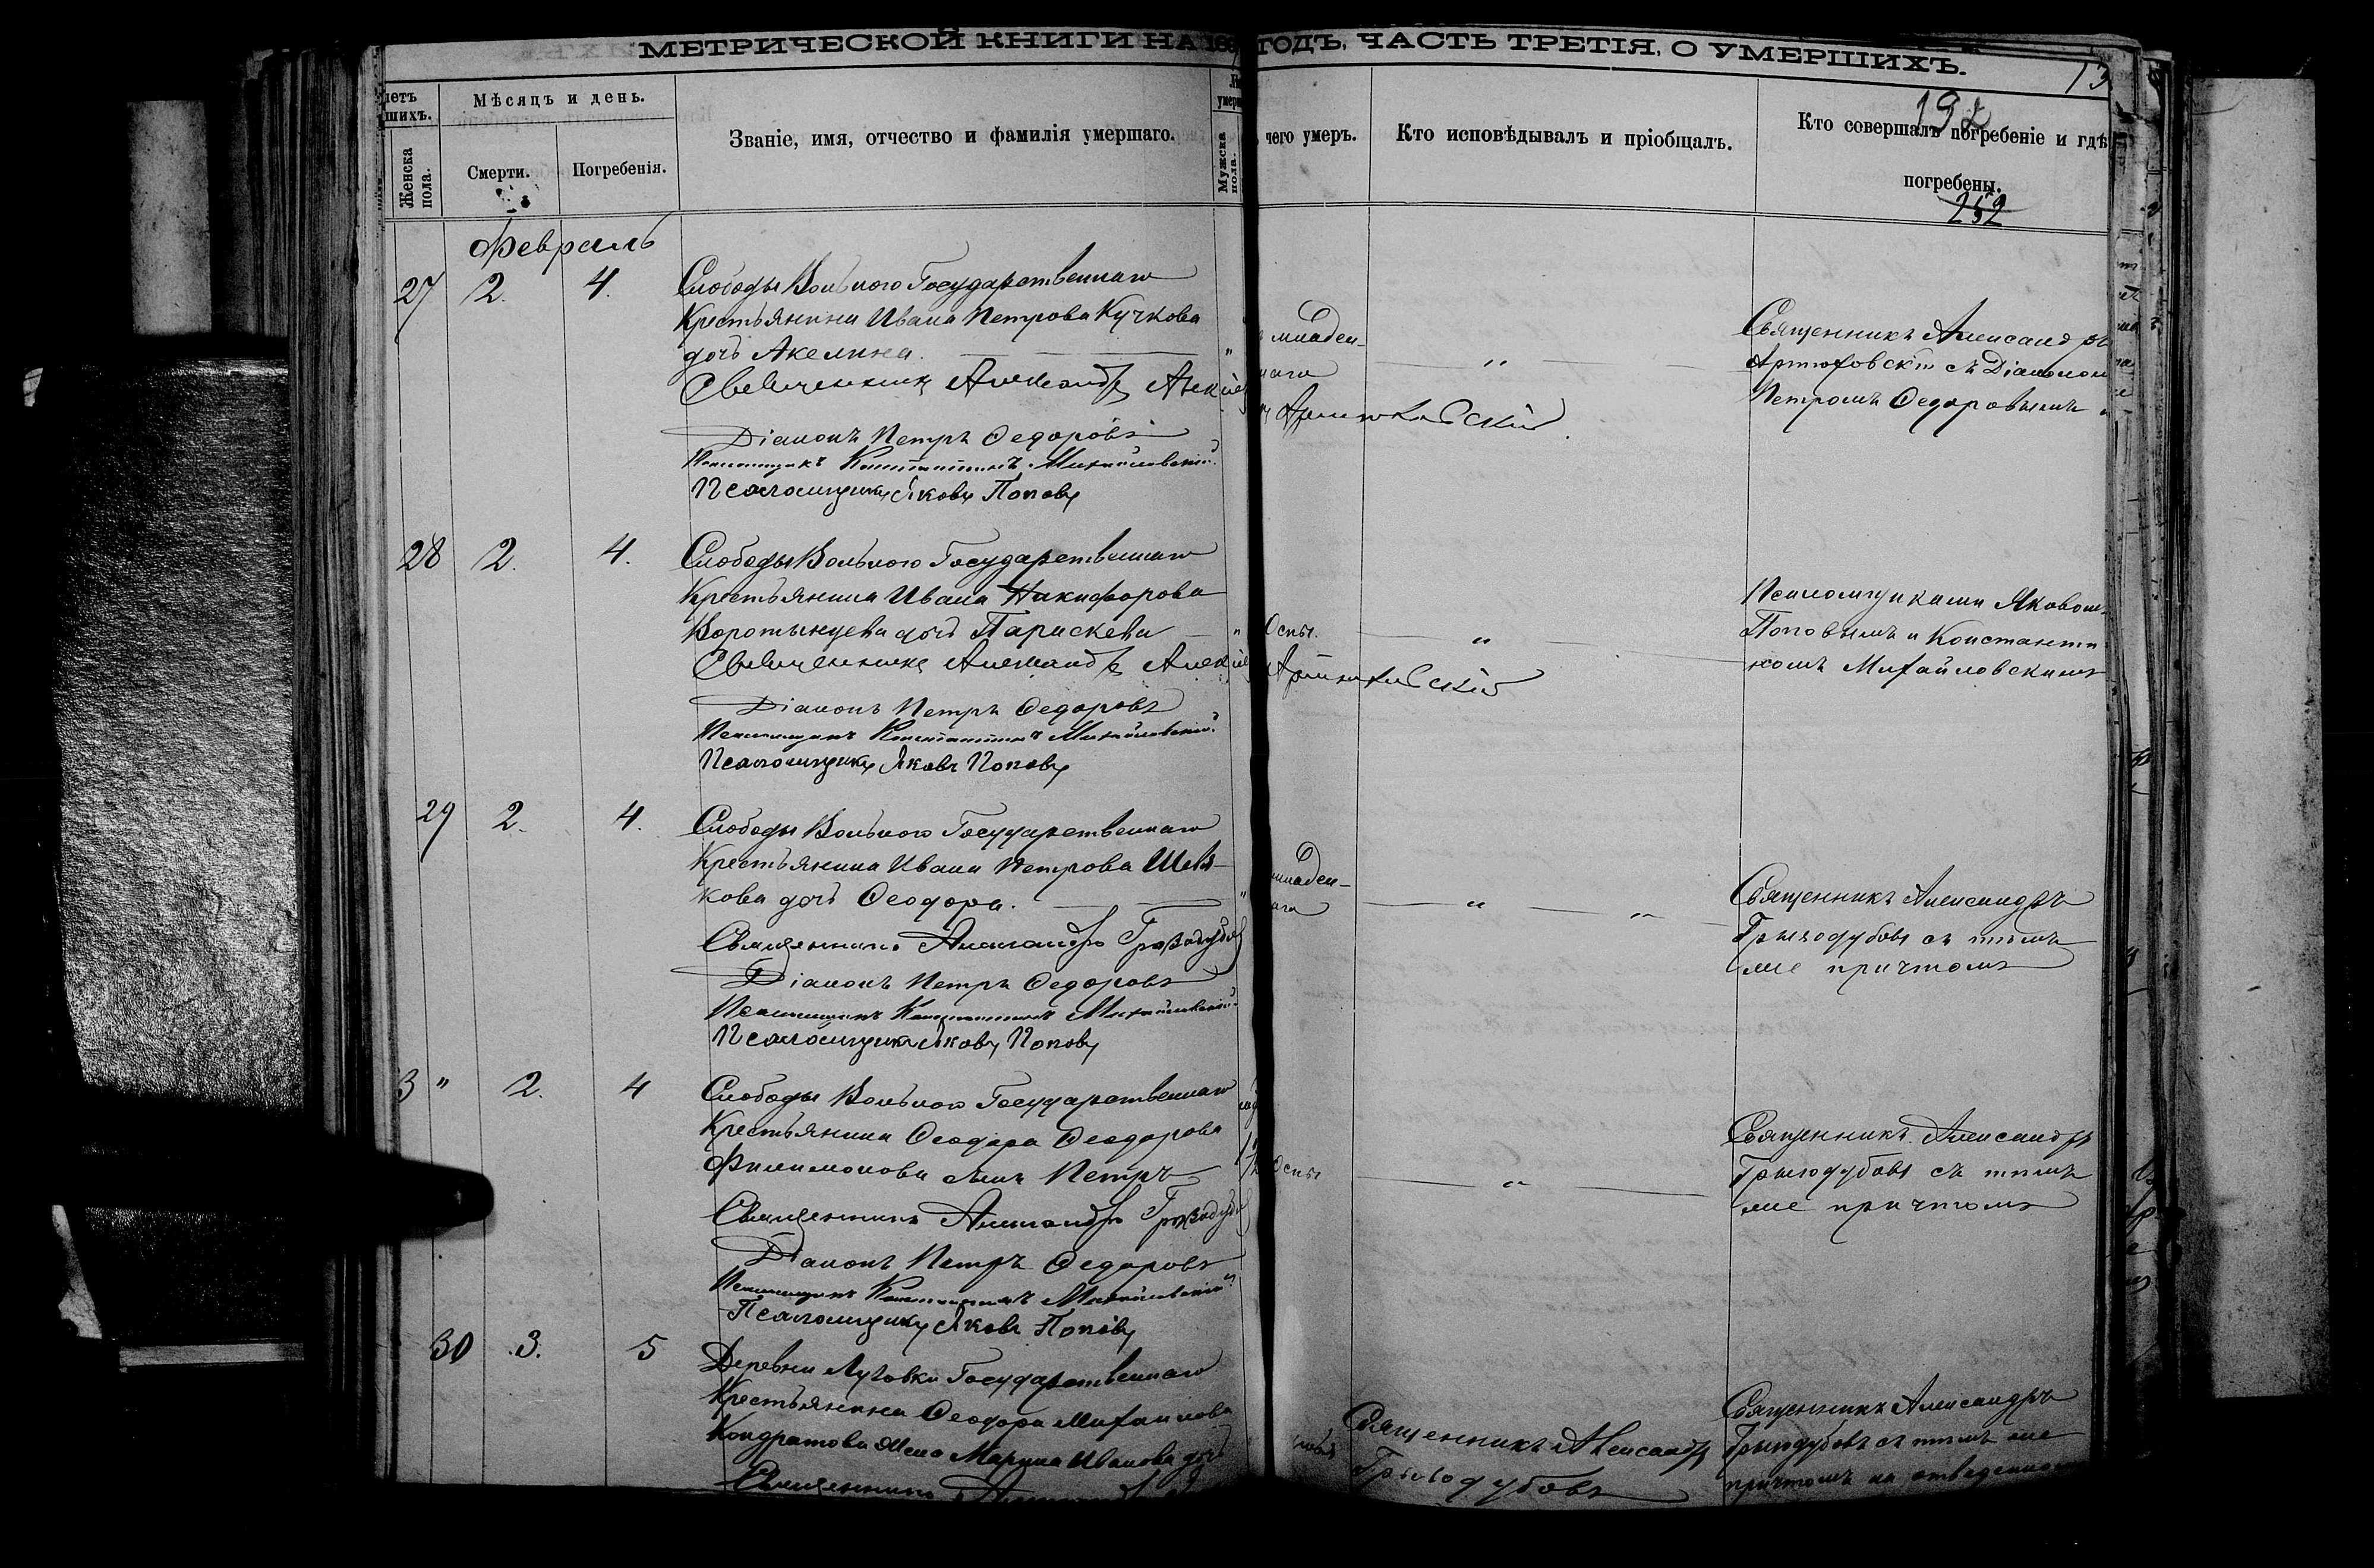 МЕТРИЧЕСКОЙ КНИГИ НА 18 ГОДЪ, ЧАСТЬ ТРЕТІЯ, О УМЕРШИХЪ.
13
192
Мѣсяцъ и день.
Женска пола.
Смерти.
Погребенія.
Званіе, имя, отчество и фамилія умершаго.
Мужска пола.
чего умеръ.
Кто исповѣдывалъ и пріобщалъ.
Кто совершалъ погребеніе и гдѣ
погребены.
252
Февраль
27 2. 4.
Слободы Вольного Государственнаго
Крестьянина Ивана Петрова Кучкова
дочь Акелина.
Священникъ Александръ
Діаконъ Петръ Федоровъ
Псаломщикъ Константинъ Михайловскій
Псаломщикъ Яковъ Поповъ
младен-
" 
Священникъ Александръ
Артюховскій съ Діакономъ
Петромъ Федоровымъ и
28 2. 4.
Слободы Вольного Государственнаго
Крестьянина Ивана Никифорова
Воротынцева дочь Парискева
Священникъ Александръ
Діаконъ Петръ Федоровъ
Псаломщикъ Константинъ Михайловскій
Псаломщикъ Яковъ Поповъ
Оспы.
"
Псаломщиками Яковом
Поповымъ и Константи-
номъ Михайловскимъ
29 2. 4.
Слободы Вольного Государственнаго
Крестьянина Ивана Петрова Шев-
кова дочь Феодора.
Священникъ Александръ
Діаконъ Петръ Федоровъ
Псаломщикъ Константинъ Михайловскій
Псаломщикъ Яковъ Поповъ
младен-
" "
Священникъ Александръ
Грызодубовъ съ тѣмъ
же причтомъ
3 " 2. 4
Слободы Вольного Государственнаго
Крестьянина Феодора Феодорова
Филимонова сынъ Петръ
Священникъ Александръ
Діаконъ Петръ Федоровъ
Псаломщикъ Константинъ Михайловскій
Псаломщикъ Яковъ Поповъ
Оспы
"
Священникъ Александръ
Грызодубовъ съ тѣмъ
же причтомъ
30 3. 5
Деревни Луговки Государственнаго
Крестьянина Феодора Михаилова
Кондратова жена Марина Иванова дочь
Священникъ
Священникъ Александръ
Грызодубовъ
Священникъ Александръ
Грызодубовъ съ тѣмъ же
причтомъ на отведенномъ